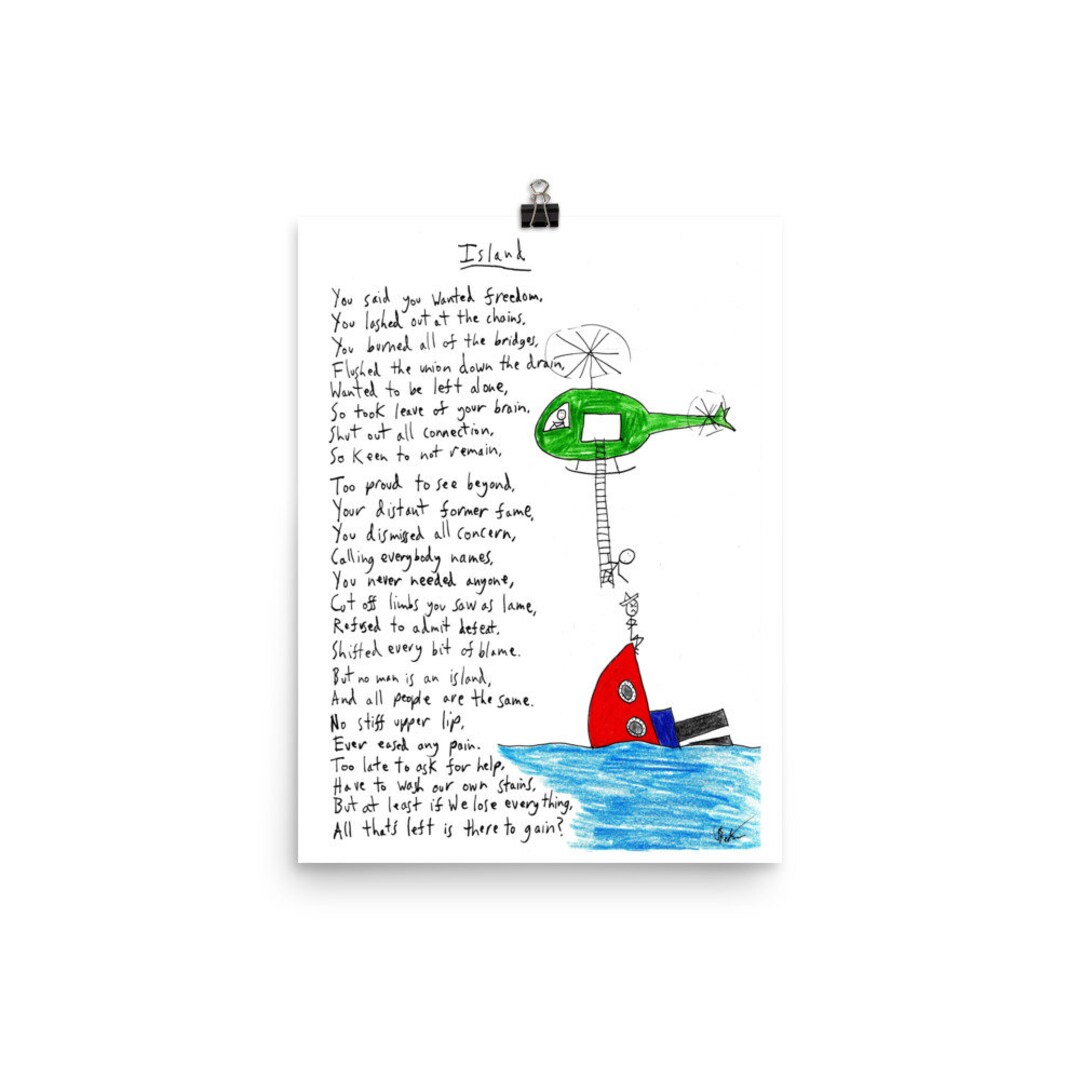 Island
You said you wanted freedom,
You lashed out at the chains,
You burned all of the bridges,
Flushed the union down the drain,
Wanted to be left alone,
So took leave of your brain,
Shut out all connection,
So Keen to not remain,
Too proud to see beyond,
Your distant former fame,
You dismissed all concern,
Calling everybody names,
You never needed anyone,
Cut off limbs you saw as lame,
Refused to admit defeat.
Shifted every bit of blame.
But no man is an island,
And all people are the same.
No stiff upper lip,
Ever eased any pain.
Too late to ask for help,
Have to wash our own stains,
But at least if we lose everything,
All that's left is there to gain?